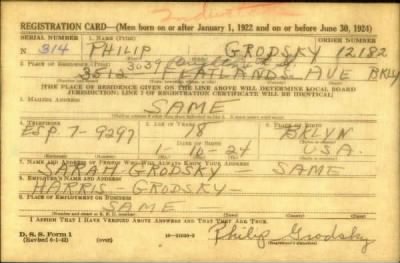 REGISTRATION CARD—(Men born on or after January 1, 1922 and on or before June 30, 1924)
SERIAL NUMBER 1. NAME (Print) ORDER NUMBER
N 314 PHILIP GRODSKY 12182
2. PLACE OF RESIDENCE (Print) 3039
3512 FLATLANDS AVE BKLY
[THE PLACE OF RESIDENCE GIVEN ON THE LINE ABOVE WILL DETERMINE LOCAL BOARD
JURISDICTION; LINE 2 OF REGISTRATION CERTIFICATE WILL BE IDENTICAL]
3. MAILING ADDRESS
SAME
4. TELEPHONE 5. AGE IN YEARS 6. PLACE OF BIRTH
ESP. 7-9297 18 BKLYN
DATE OF BIRTH
1-10-24 U.S.A.
7. NAME AND ADDRESS OF PERSON WHO WILL ALWAYS KNOW YOUR ADDRESS
SARAH GRODSKY – SAME
8. EMPLOYER'S NAME AND ADDRESS
HARRIS – GRODSKY –
SAME
I AFFIRM THAT I HAVE VERIFIED ABOVE ANSWERS AND THAT THEY ARE TRUE.
D. S. S. Form 1
(Revised 6-1-42) (over) Philip Grodsky